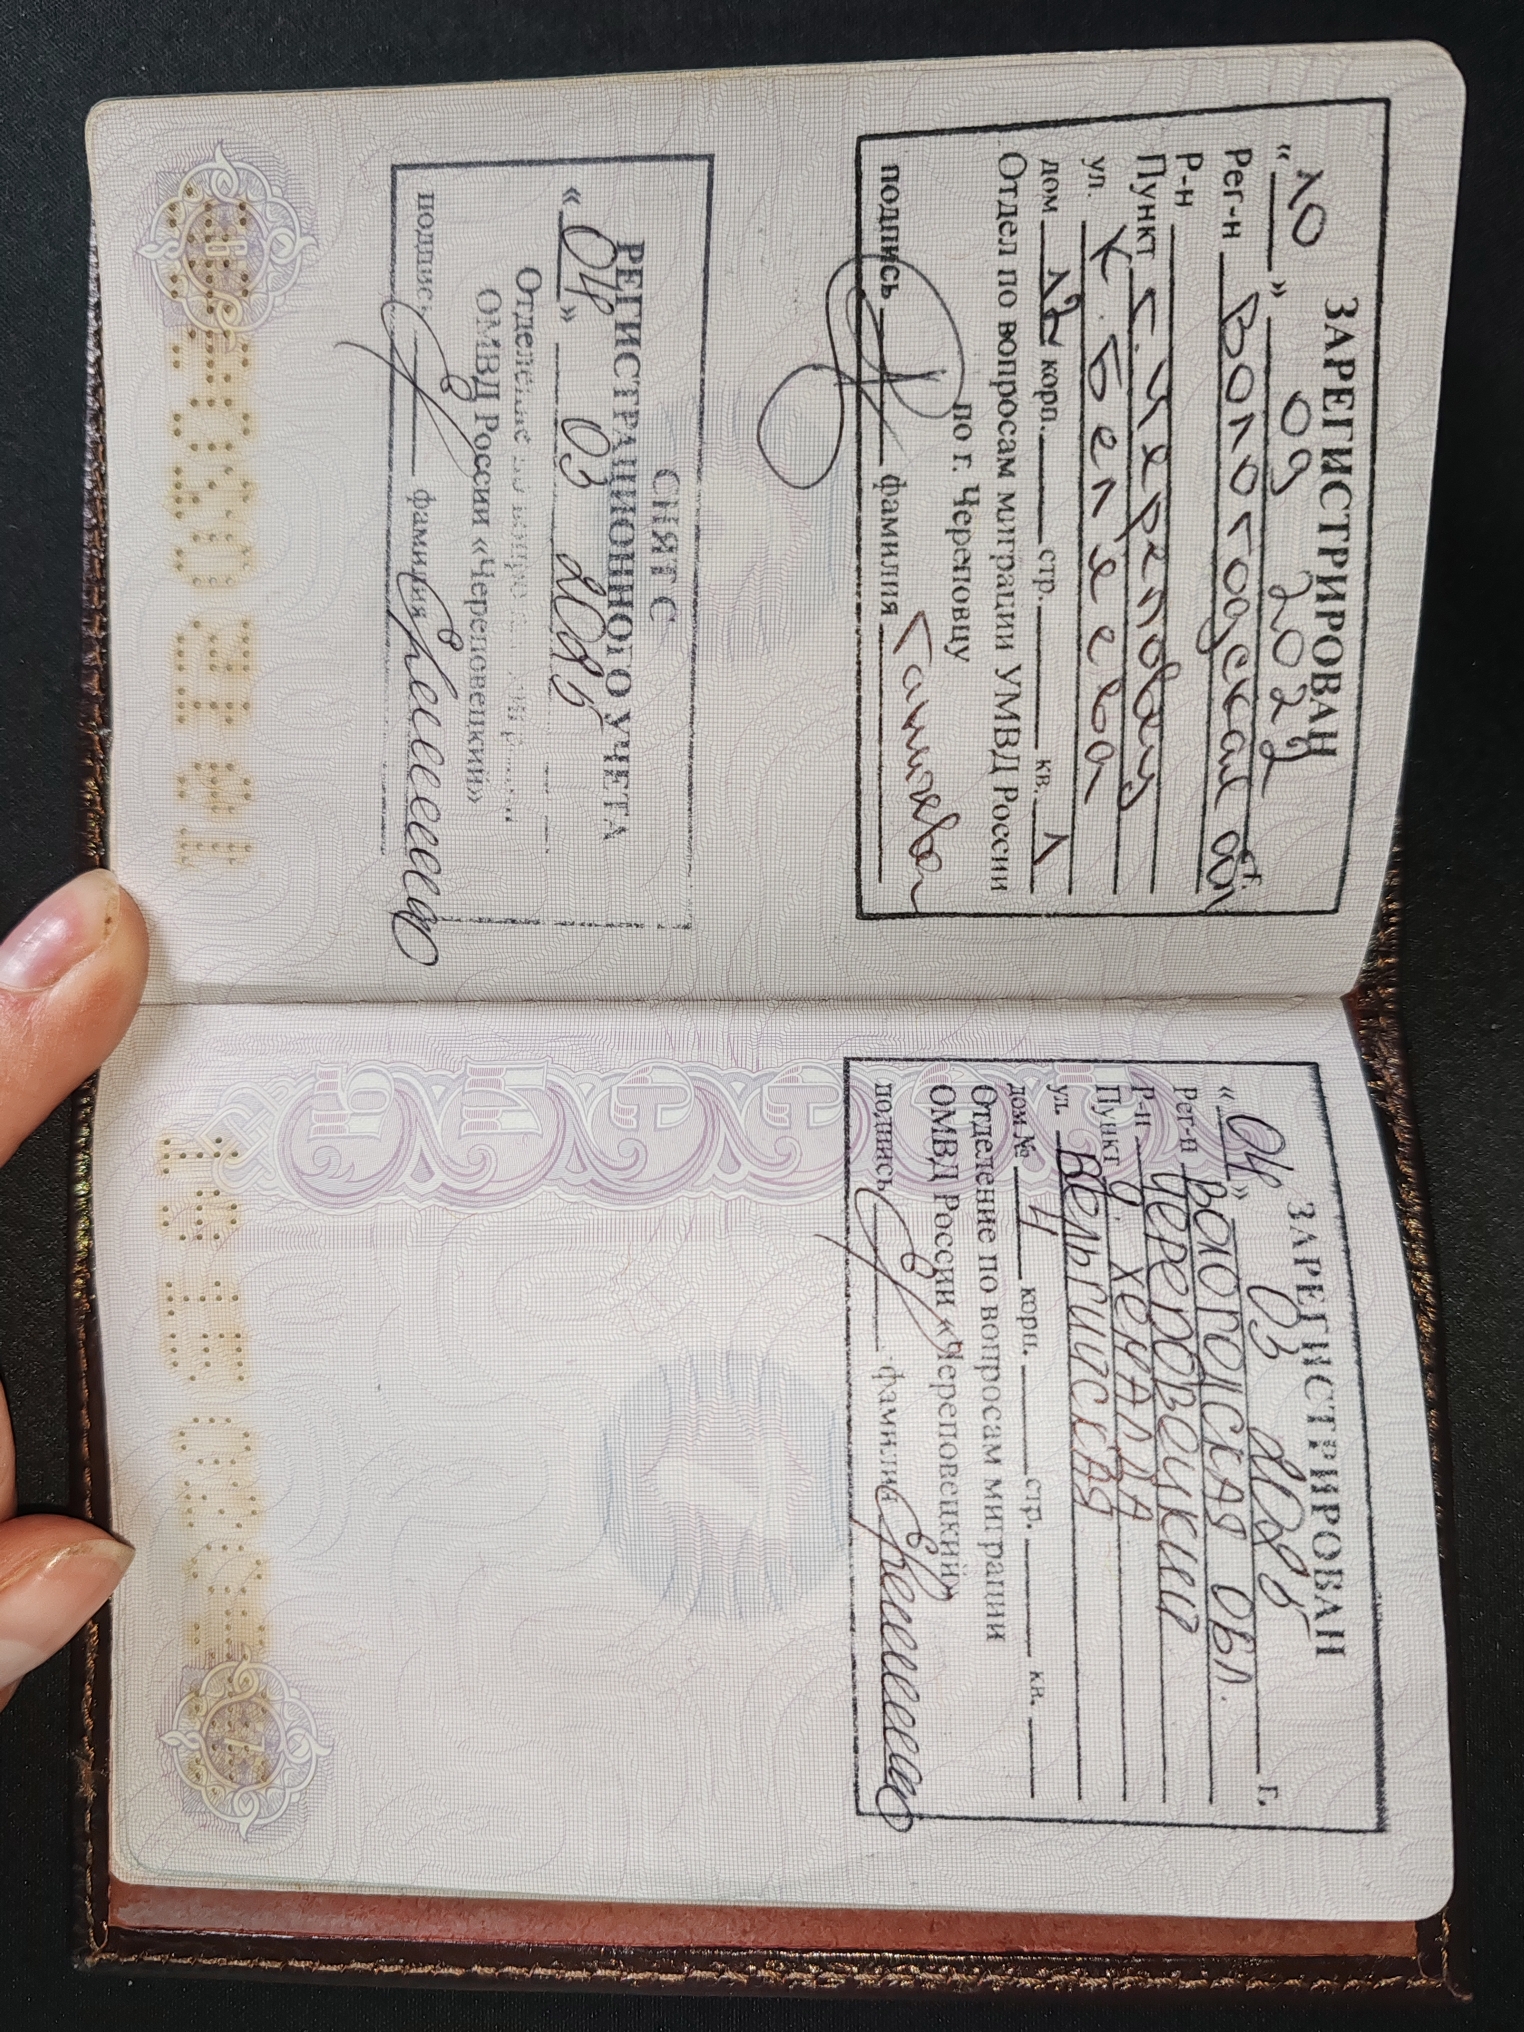 ЗАРЕГИСТРИРОВАН
«10» 09 2022 г.
Рег-н Вологодская обл
Р-н
Пункт г. Череповец
ул. К. Беляева
дом корп. стр. кв. 1
Отдел по вопросам миграции УМВД России
по г. Череповцу
подпись фамилия
СНЯТ С
РЕГИСТРАЦИОННОГО УЧЕТА
«04» 03 2025
Отделение
ОМВД России «Череповецкий»
подпись фамилия
ЗАРЕГИСТРИРОВАН
«04» 03 2025 г.
Рег-н ВОЛОГОДСКАЯ ОБЛ.
Р-н ЧЕРЕПОВЕЦКИЙ
Пункт Д. ХЕМАЛДА
ул. БЕЛЬГИЙСКАЯ
дом № 4 корп. стр. кв.
Отделение по вопросам миграции
ОМВД России «Череповецкий»
подпись фамилия